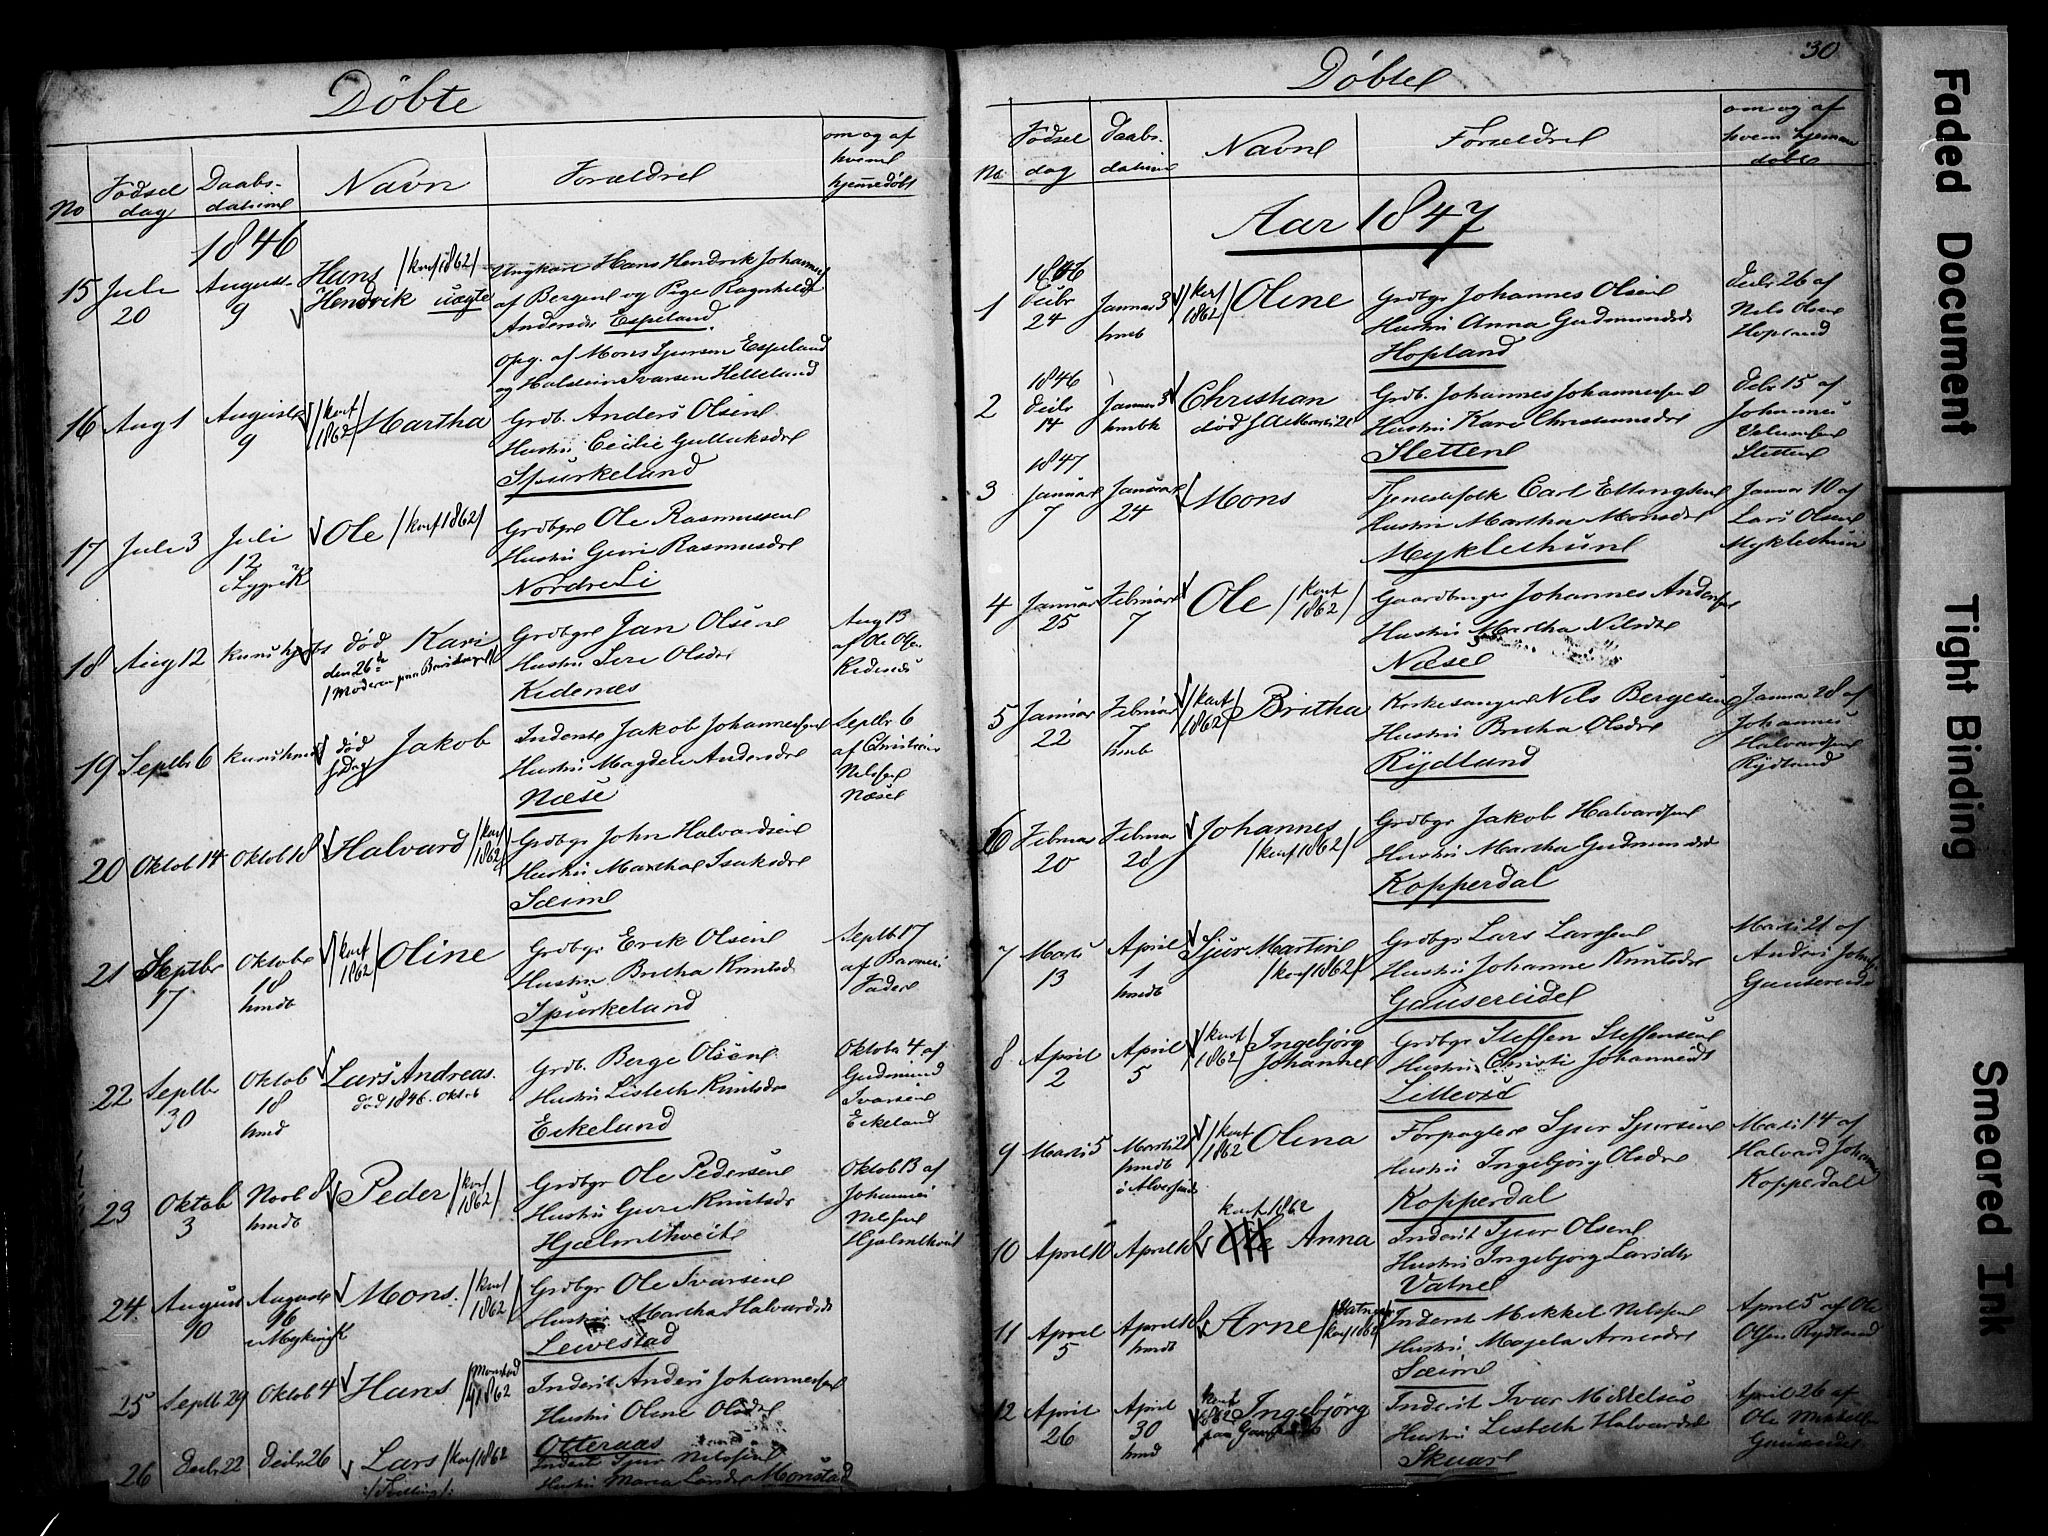 Døbte
No
Fødsel
dag
Daabs-
datume
Navn
Forældre
om og af
hvem
hjemmedøbt
1846
15 Juli
20
August
9
Hans /konf 1862/
Hendrik uægte
Ungkarl Hans Hendrik Johannes
af Bergen og Pige Ragnhilde
Andersdr Espeland
Opg. af Mons Sjursen Espeland
og Halstein Ivarsen Helleland
16 Aug 1
Auguste
9
/konf
1862/ Martha
Grdb. Anders Olsen
Hustru Cecilie Gulleiksdr
Spurkeland
17 Juli 3
Juli
12
i Lygre K
Ole /konf 1862/
Grdbgr Ole Rasmussen
Hustru Guri Rasmusdr
Nordre Li
18 Aug 12
død Kari
den 26de
Grdbgr Jan Olsen
Hustru Siri Olsdr
Kidenæs
Aug 13
af Ole Olsen
Kidenæs
19 Septbr 6
død
s Dag Jakob
Inderst Jakob Johannessen
Hustru Magdele Andersdr
Næse
Septbr 6
af Christian
Nilsen
Næse
20 Oktob 14
Oktob 18
Halvard /konf
1862/
Grdbgr John Halvardsen
Hustru Martha Isaksdr
Sæim
21 Septbr
17
Oktobr
18
hmdb
/konf
1862/ Oline
Grdbgr Erik Olsen
Hustru Britha Knutsd
Spurkeland
Septb 17
af Barnets
Fader
22 Septbr
30
Oktob
18
hmd
Lars Andreas.
død 1846. Oktob
Grdb. Berge Olsen
Hustru Lisbeth Knutsdr
Eikeland
Oktobr 4 af
Gudmund
Ivarsen
Eikeland
23 Oktob
3
Novb 8
hmdt
Peder /konf
1862/
Grdbgr Ole Pedersen
Hustru Guro Knutsdr
Hjelmtveit
Oktob 13 af
Johannes
Nilsen
Hjelmtveit
24 August
10
Auguste
16
Mons. /konf
1862/
Grdbgr Ole Ivarsen
Hustru Martha Halvardsdr
Levestad
25 Septb 29
Oktob 4
Hans /Monstad
1862
Inderst Anders Johannessen
Hustru Oline Olsdr
Otteraas
26 Decbr 22
Decbr 26
Lars /konf 1862
Inderst Sjur Nilssen
Hustru Maria Larsdr Monstad
Døbte
30
No
Fødsel
dag
Daabs-
datum
Navne
Forældre
om og af
hvem hjemme
døbt
Aar 1847
1846
1 Decbr
24
Januar 3
hmdb
/konf
1862/ Oline
Grdbgr Johannes Olsen
Hustru Anna Gudmundsdr
Hopland
Decbr 26 af
Nils Olsen
Hopland
1846
2 Decbr
14
Januar 3
Christian
Grdb. Johannes Johannessen
Hustru Kari Christiansdr
Sletten
Decbr 15 af
Johannes
Sletten
1847
3 Januar
7
Januar
24
Mons
Tjenestefolk Carl Ellingsen
Hustru Martha Monsdr
Myklethun
Januar 10 af
Lars Olsen
Myklethun
4 Januar
25
Februar
7
Ole /konf
1862/
Gaardbruger Johannes Anders
Hustru Martha Nilsdr
Næse
5 Januar
22
Februar
7
hmb
/konf
1862/ Britha
Kirkesanger Nils Bergesen
Hustru Britha Olsdr
Rydland
Januar 28 af
Johannes
Halvardsen
Rydland
6 Februar
20
Februar
28
Johannes
/konf 1862/
Grdbgr Jakob Halvardsen
Hustru Martha Gudmundsdr
Kopperdal
7 Marts
13
April
1
hmdb
Sjur Martin
/konf 1862/
Grdbgr Lars Larssen
Hustru Johanne Knutsdr
Gausereidet
Marts 21 af
Anders Johns
Gausereide
8 April
2
April
5
/konf
1862/ Ingebjørg
Johanne
Grdbgr Steffen Steffensen
Hustru Christi Johannesdt
Littevæd
9 Marts 5
Marts 21
hmdb
/konf
1862 Olina
Forpagter Sjur Sjursen
Hustru Ingebjørg Olsdr
Kopperdal
Marts 14 af
Halvard Johannes
Kopperdal
10 April 10
April 18
konf 1862
Anna
Inderst Sjur Olsen
Hustru Ingebjørg Larsdtr
Vatne
11 April
5
April 18
hmdt
Arne
/konf 1862/
Inderst Mikkel Nilsen
Hustru Magela Arnesdr
Sæim
April 5 af Ole
Olsen Rydland
12 April
26
April
30
hmd
konf
1862 Ingebjørg
Inderst Ivar Mikkelsen
Hustru Lisbeth Halvardsdr
Skuar
April 26 af
Ole Mikkelsen
Faded Document
Tight Binding
Smeared Ink